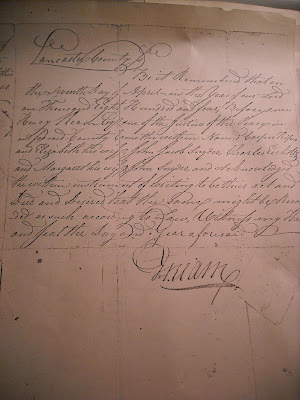 Lancaster County Ss
Be it Remembered that on
the Seventh Day of April in the Year of our Lord
one thousand Eight Hundred and four, Before me
Henry Esqr. one of the Justices of the Peace in
and for said County came the within Named
and Elizabeth his wife John Snyder, Charles
and Margaret his wife John Snyder, and Acknowledged
the within instrument of Writing to be their act and
Deed and Desired that the Same might be Recor
ded as such according to Law, Witness my Hand
and Seal the Day and Year aforesaid